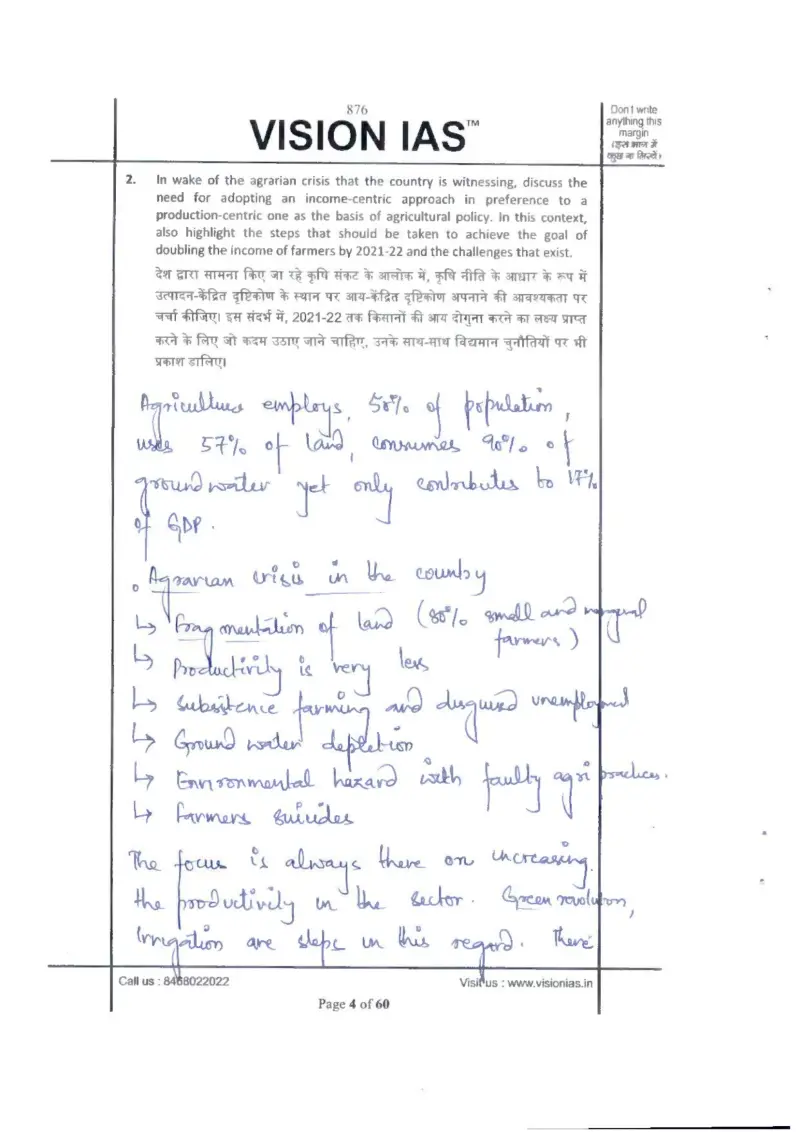 876
VISION IAS™
Don't write
anything this
margin
(इस भाग में
कुछ ना लिखें)
2. In wake of the agrarian crisis that the country is witnessing, discuss the
need for adopting an income-centric approach in preference to a
production-centric one as the basis of agricultural policy. In this context,
also highlight the steps that should be taken to achieve the goal of
doubling the income of farmers by 2021-22 and the challenges that exist.
देश द्वारा सामना किए जा रहे कृषि संकट के आलोक में, कृषि नीति के आधार के रूप में
उत्पादन-केंद्रित दृष्टिकोण के स्थान पर आय-केंद्रित दृष्टिकोण अपनाने की आवश्यकता पर
चर्चा कीजिए। इस संदर्भ में, 2021-22 तक किसानों की आय दोगुना करने का लक्ष्य प्राप्त
करने के लिए जो कदम उठाए जाने चाहिए, उनके साथ-साथ विद्यमान चुनौतियों पर भी
प्रकाश डालिए।
Agriculture employs, 50% of population,
uses 57% of land, consumes 90% of
groundwater yet only contributes to 17%
of GDP.
Agrarian crisis in the country
↳ Fragmentation of land (80% small and marginal
farmers)
↳ Productivity is very less
↳ Subsistence farming and disguised unemployed
↳ Ground water depletion
↳ Environmental hazard with faulty agri practices.
↳ Farmers suicides
The focus is always there on increasing
the productivity in the sector. Green revolution,
Irrigation are steps in this regard. There
Call us : 8468022022
Visit us : www.visionias.in
Page 4 of 60